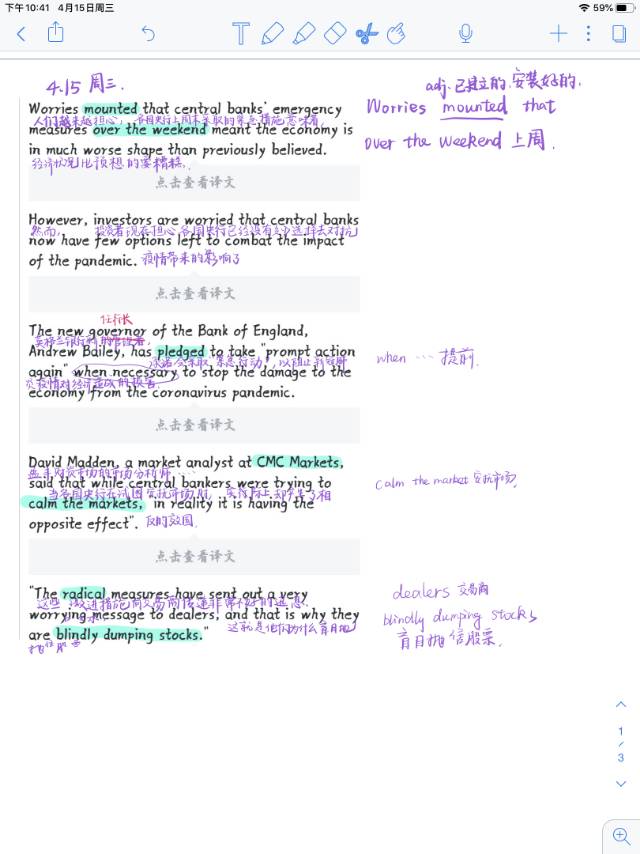 下午10:41 4月15日周三
59%
4.15 周三.
adj. 已建立的, 安装好的.
Worries mounted that central banks' emergency
Worries mounted that
人们越来越担心, 各国央行上周末采取的紧急措施意味着,
measures over the weekend meant the economy is
over the weekend 上周.
in much worse shape than previously believed.
经济状况比预想的要糟糕.
点击查看译文
However, investors are worried that central banks
然而, 投资者现在担心各国央行已经没有多少选择去对抗
now have few options left to combat the impact
of the pandemic. 疫情带来的影响了
点击查看译文
任行长
The new governor of the Bank of England,
英格兰银行新
Andrew Bailey, has pledged to take "prompt action
when … 提前.
承诺会采取"紧急行动", 以阻止
again" when necessary to stop the damage to the
疫情对经济造成的损害.
economy from the coronavirus pandemic.
点击查看译文
David Madden, a market analyst at CMC Markets,
市场分析师 ……
said that while central bankers were trying to
calm the market 安抚市场.
当各国央行在试图安抚市场时, 实际上却产生了相
calm the markets, "in reality it is having the
opposite effect". 反的效果.
点击查看译文
dealers 交易商
"The radical measures have sent out a very
这些激进措施向交易商传递非常不好的消息.
worrying message to dealers, and that is why they
blindly dumping stocks
are blindly dumping stocks." 这就是他们为什么盲目地
盲目抛售股票.
抛售股票
1
/
3